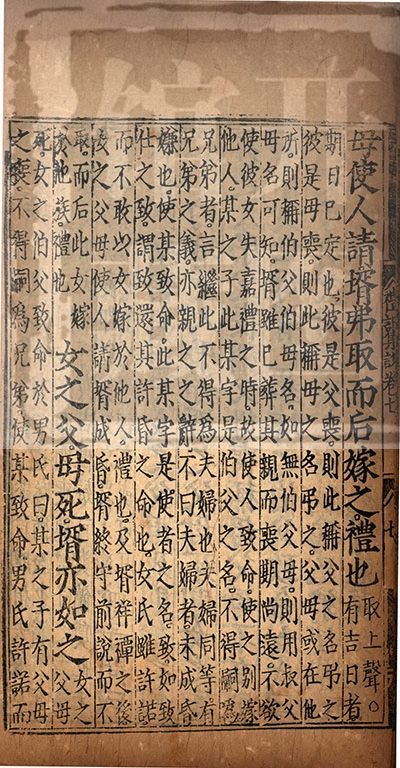 母使人請壻弗取而后嫁之禮也
取上聲○
有吉日者
期日已定也彼是父喪則此稱父之名弔之
彼是母喪則此稱母之名弔之父母或在他
所則稱伯父伯母名如無伯父母則用叔父
母名可知壻雖已葬其親而喪期尚遠不欲
使彼女失嘉禮之時故使人致命使之別嫁
他人某之子此某字是伯父之名不得嗣爲
兄弟者言繼此不得為夫婦也夫婦同等有
兄弟之義亦親之之辞不曰夫婦者未成昏
嫌也使某致命此某字是使者之名致如致
仕之致謂致還其許昏之命也女氏雖許諾
而不敢以女嫁於他人禮也及壻祥禫之後
女之父母使人請壻成昏壻終守前說而不
取而后此女嫁
於他族禮也
女之父母死壻亦如之
女之
父母
死女之伯父致命於男氏曰某之子有父母
之喪不得嗣爲兄弟使某致命男氏許諾而
礼記集說 卷七
七